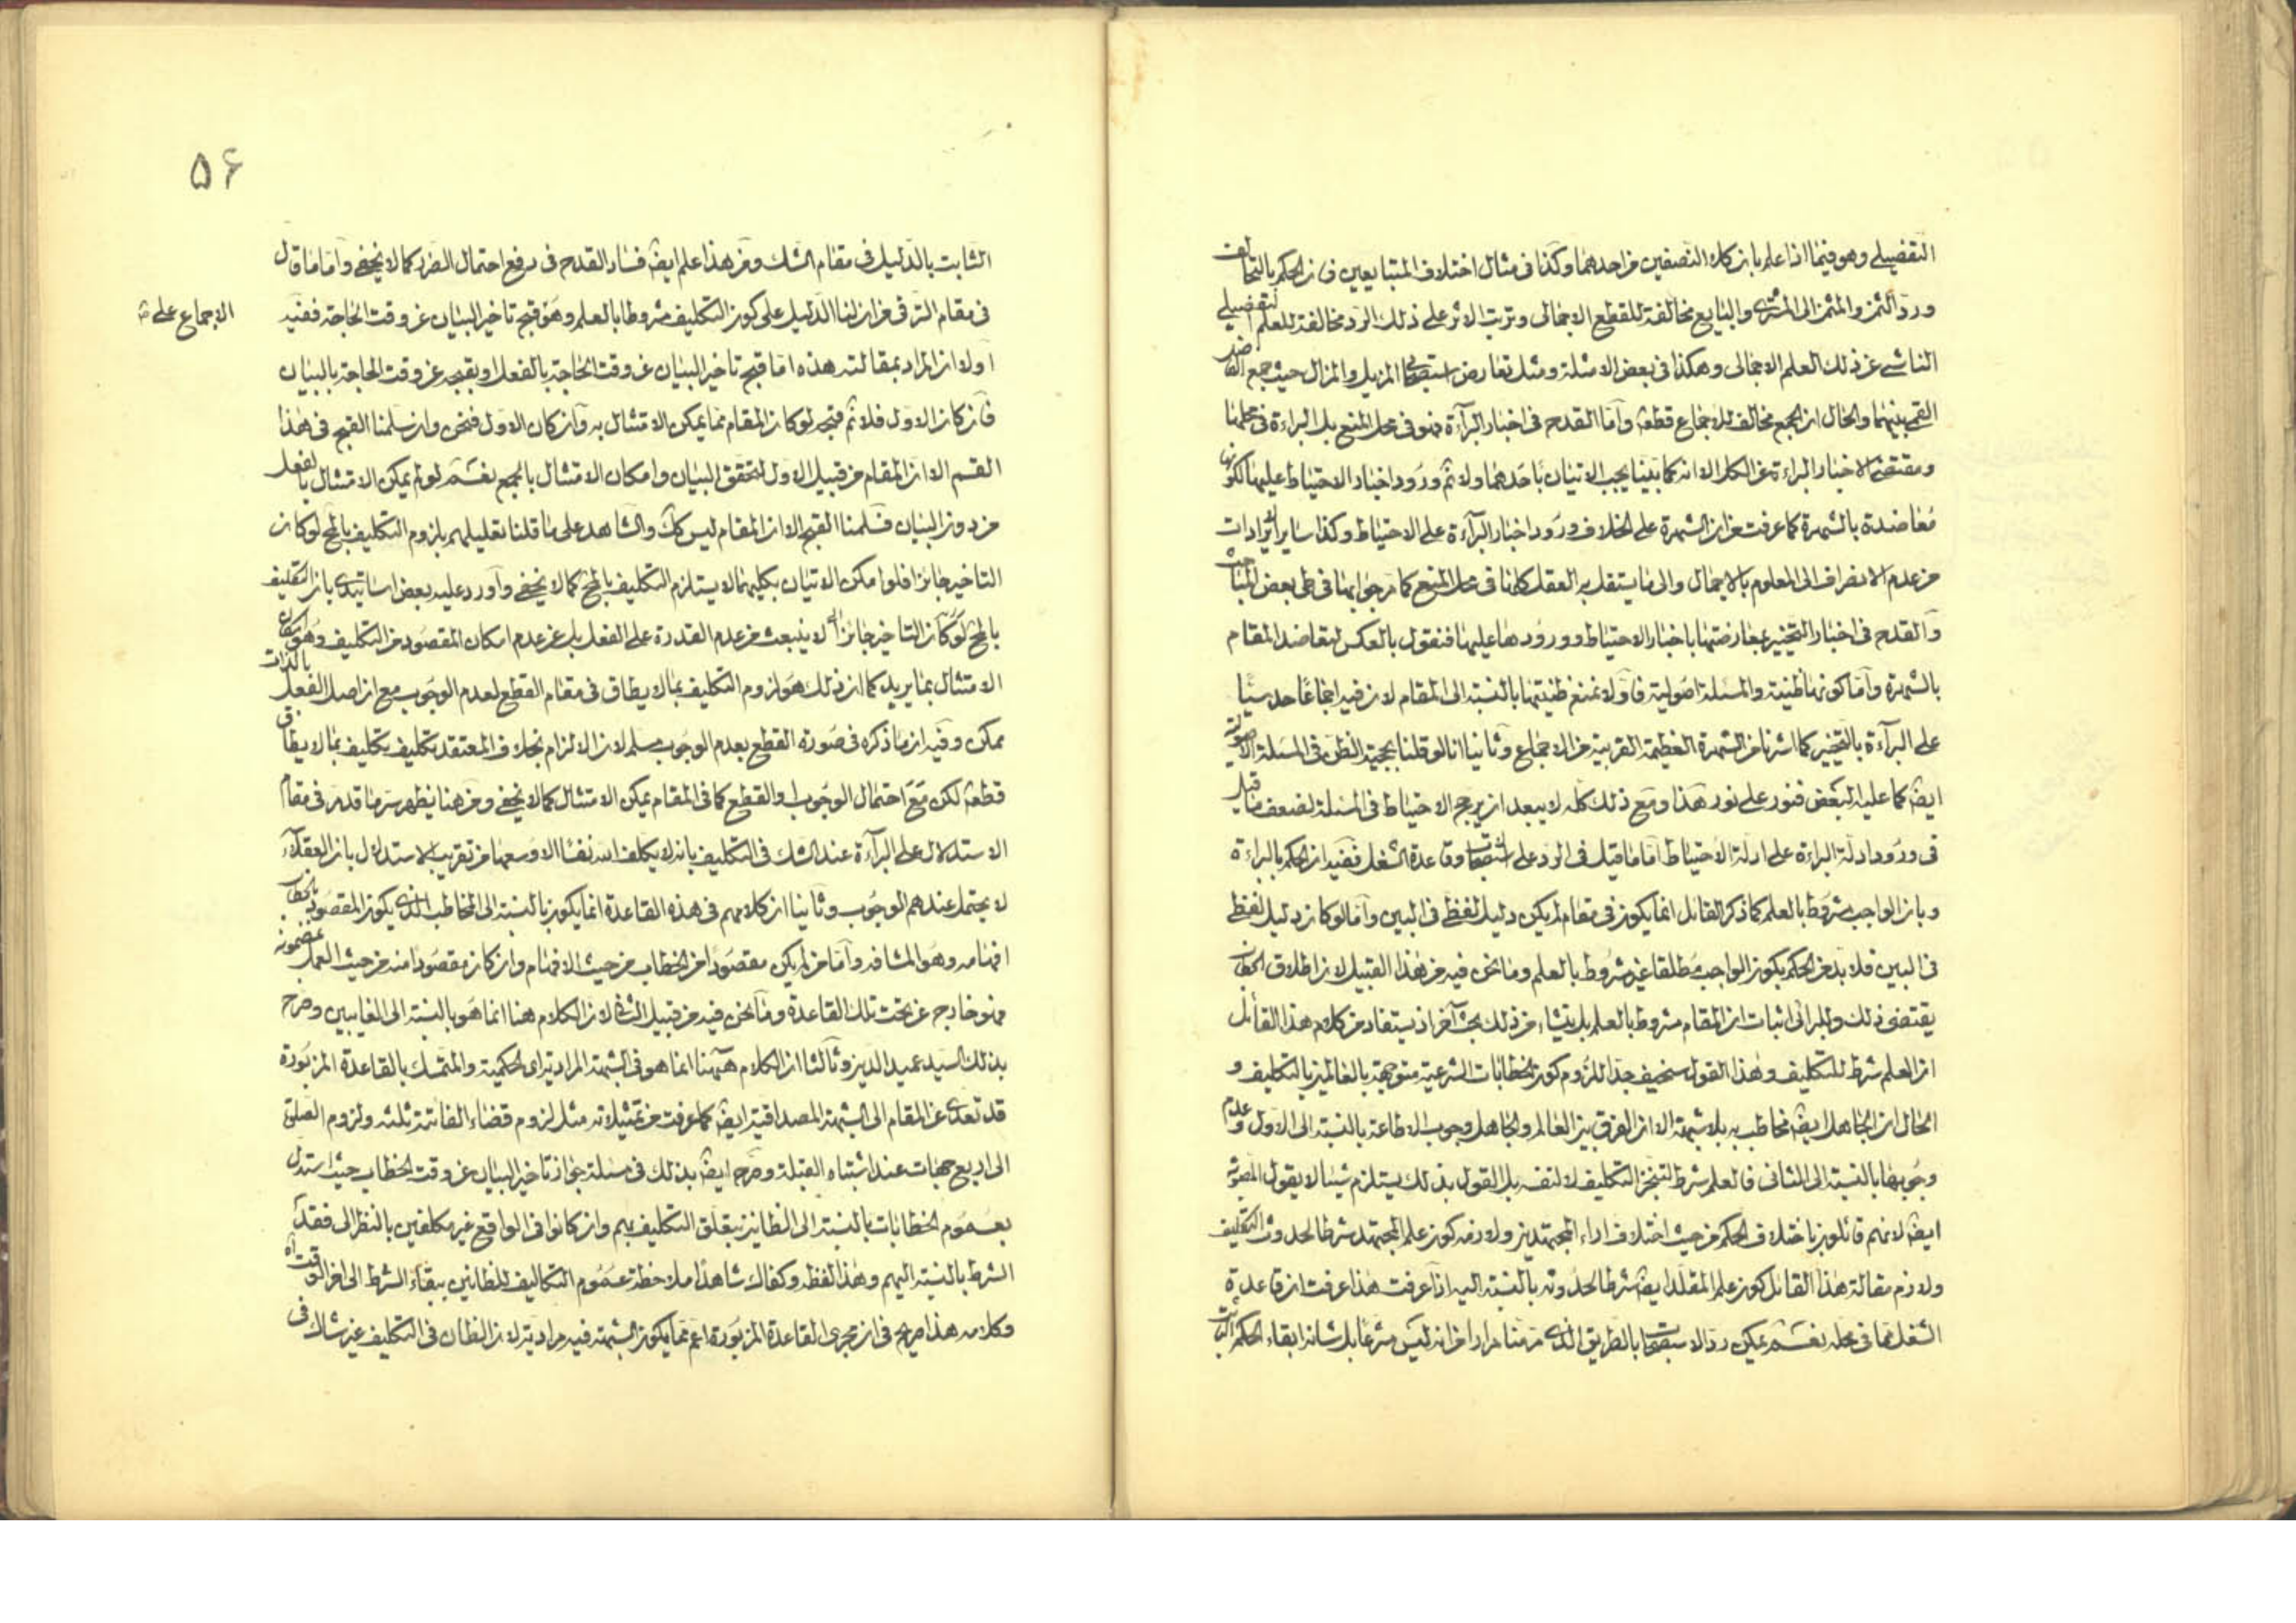 التفضيلي وهو فيما اذا علم بان كلا النصفين من احدهما وكذا في مثال اختلاف المتبايعين فان الحكم بالتحالف
ورد الثمن والمثمن الى المشتري والبايع مخالفة للقطع الاجمالي وترتب الاثر على ذلك الرد مخالفة للعلم التفضيلي
الناشي عن ذلك العلم الاجمالي وهكذا في بعض الامثلة ومثل تعارض استصحابي المزيل والمزال حيث جمع الفاضل
القمي بينهما والحال ان الجمع مخالف للاجماع قطعا واما القدح في اخبار البرآءة فهو في محل المنع بل البراءة في محلها
ومقتضى الاخبار البراءة عن الكل الا انه كما بينا يجب الاتيان باحدهما ولا ثم ورود اخبار الاحتياط عليها لكونها
مغاضدة بالشهرة كما عرفت من ان الشهرة على الخلاف ورود اخبار البرآءة على الاحتياط وكذا ساير الايرادات
من عدم الانصراف الى المعلوم بالاجمال والى ما يستقل به العقل كلها في محل المنع كما مر جوابها في طي بعض المباحث
والقدح في اخبار التخيير بمعارضتها باخبار الاحتياط وورودها عليها فنقول بالعكس لتعاضد المقام
بالشهرة واما كونها ظنية والمسئلة اصولية فاولا نمنع ظنيتها بالنسبة الى المقام لان فيه اجماعا حدسيا
على البرآءة بالتخيير كما اشرنا من الشهرة العظيمة القريبة من الاجماع وثانيا انا لو قلنا بحجية الظن في المسئلة الاصولية
ايضا كما عليه البعض فنور على نور هذا ومع ذلك كله لا يبعد ان يرجح الاحتياط في المسئلة لضعف ما قيل
في ورود ادلة البراءة على ادلة الاحتياط اما ما قيل في الرد على استصحاب وقاعدة الشغل ففيه ان الحكم بالبراءة
وبان الواجب مشروط بالعلم كما ذكر القائل انما يكون في مقام لم يكن دليل لفظي في البين واما لو كان دليل لفظي
في البين فلا بد من الحكم بكون الواجب مطلقا غير مشروط بالعلم وما نحن فيه من هذا القبيل لان اطلاق الخطاب
يقتضي ذلك والمرائى اثبات ان المقام مشروط بالعلم بل ينشاء من ذلك بحث آخر اذ يستفاد من كلام هذا القائل
ان العلم شرط للتكليف وهذا القول سخيف جدا للزوم كون الخطابات الشرعية متوجهة بالعالمين بالتكليف و
الحال ان الجاهل ايضا مخاطب به بلا شبهة الا ان الفرق بين العالم والجاهل وجوب الاطاعة بالنسبة الى الاول وعدم
وجوبها بالنسبة الى الثاني فالعلم شرط لتنجز التكليف لا لنفسه بل القول بذلك يستلزم شيئا لا يقول المصوبة
ايضا لانهم قائلون باختلاف الحكم من حيث اختلاف اراء المجتهدين ولازمه كون علم المجتهد شرطا لحدوث التكليف
ولازم مقالة هذا القائل كون علم المقلد ايضا شرطا لحدوثه بالنسبة اليه اذا عرفت هذا عرفت ان قاعدة
الشغل مما في محله نعم يمكن رد الاستصحاب بالطريق الذي مر منا مرارا من انه ليس مشرعا بل شانه ابقاء الحكم الثابت
۵۶
الثابت بالدليل في مقام الشك ومن هذا علم ايضا فساد القدح في رفع احتمال الضرر كما لا يخفى واما ما قال
في مقام الترقي من ان لنا الدليل على كون التكليف مشروطا بالعلم وهو قبح تاخير البيان عن وقت الحاجة ففيه
الاجماع على
اولا ان المراد بمقالته هذه اما قبح تاخير البيان عن وقت الحاجة بالفعل او بقبحه عن وقت الحاجة بالبيان
فان كان الاول فلا ثم قبحه لو كان المقام مما يمكن الامتثال به وان كان الاول فنحن وان سلمنا القبح في هذا
القسم الا ان المقام من قبيل الاول لتحقق البيان وامكان الامتثال بالجميع نعم لو لم يمكن الامتثال بالفعل
من دون البيان فسلمنا القبح الا ان المقام ليس كك والشاهد على ما قلنا تعليلهم بلزوم التكليف بالمح لو كان
التاخير جائزا فلو امكن الاتيان بكليهما لا يستلزم التكليف بالمح كما لا يخفى واورد عليه بعض اساتيدي بان التكليف
بالمح لو كان التاخير جائزا لا ينبعث من عدم القدرة على الفعل بل عن عدم امكان المقصود من التكليف وهو امكان
الامتثال بما يريد كما ان ذلك هو لزوم التكليف بما لا يطاق في مقام القطع لعدم الوجوب مع ان اصل الفعل بالذات
ممكن وفيه ان ما ذكره في صورة القطع بعدم الوجوب مسلم لان الالزام بخلاف المعتقد بتكليف تكليف بما لا يطاق
قطعا لكن مع احتمال الوجوب والقطع كما في المقام يمكن الامتثال كما لا يخفى ومن هنا يظهر سر ما قدم في مقام
الاستدلال على البرآءة عند الشك في التكليف بانه لا يكلف الله نفسا الا وسعها من تقريب الاستدلال بان العقلآء
لا يحتمل عندهم الوجوب وثانيا ان كلامهم في هذه القاعدة انما يكون بالنسبة الى المخاطب الذي يكون المقصود بالخطاب
افهامه وهو المشافه واما من لم يكن مقصودا من الخطاب من حيث الافهام وان كان مقصودا منه من حيث العمل بمضمونه
فهو خارج عن تحت تلك القاعدة وما نحن فيه من قبيل الثاني لان الكلام هنا انما هو بالنسبة الى الغائبين وصرح
بذلك السيد عميد الدين وثالثا ان الكلام هيهنا انما هو في الشبهة المرادية اى الحكمية والمتمسك بالقاعدة المزبورة
قد تعدى عن المقام الى الشبهة المصداقية ايضا كما عرفت من تمثيلاته مثل لزوم قضاء الفائتة ثلثه ولزوم الصلوة
الى اربع جهات عند اشتباه القبلة وصرح ايضا بذلك في مسئلة جواز تاخير البيان عن وقت الخطاب حيث استدل
بعموم الخطابات بالنسبة الى الظانين بتعلق التكليف بهم وان كانوا في الواقع غير مكلفين بالنظر الى فقد
الشرط بالنسبة اليهم وهذا لفظه وكفاك شاهدا ملاحظة عموم التكاليف للظانين ببقاء الشرط الى اخر الوقت اه
وكلامه هذا صريح في ان مجرى القاعدة المزبورة اعم مما يكون الشبهة فيه مرادية لان الظان في التكليف غير شاك في